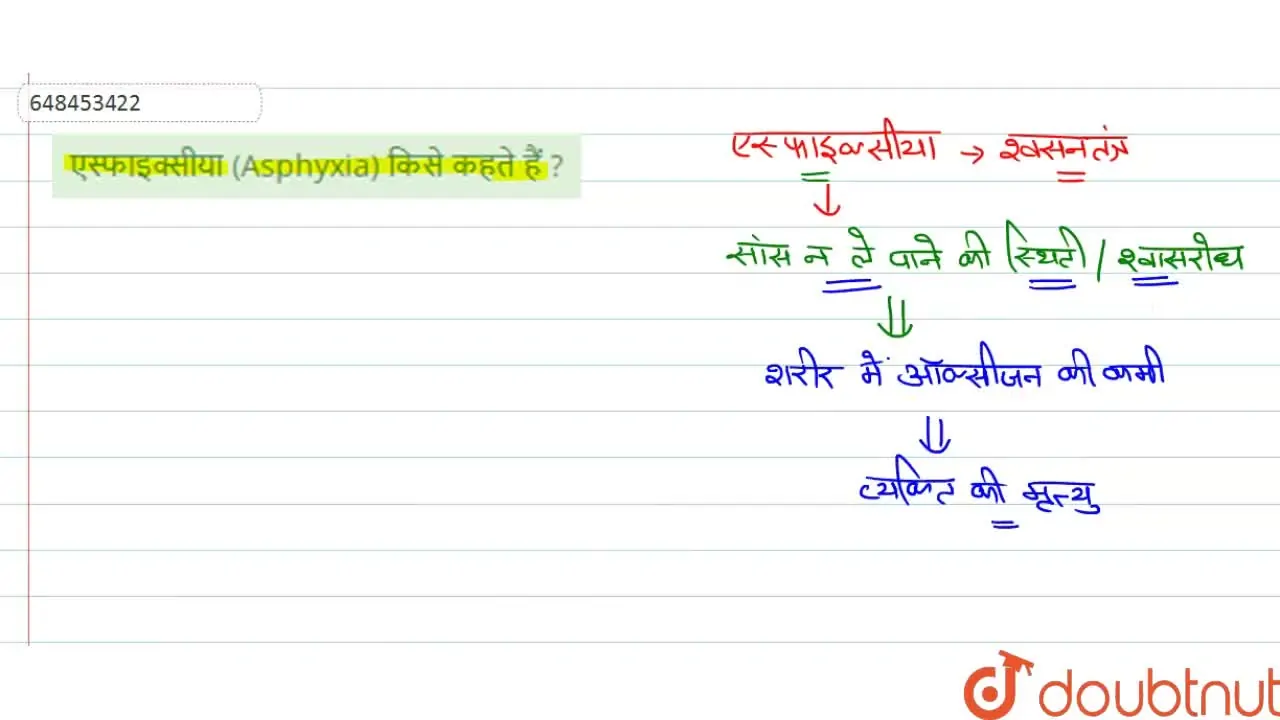 648453422
एस्फाइक्सीया (Asphyxia) किसे कहते हैं ?
एस्फाइक्सीया → श्वसनतंत्र
सांस न ले पाने की स्थिती / श्वासरोध
शरीर में ऑक्सीजन की कमी
व्यक्ति की मृत्यु
doubtnut